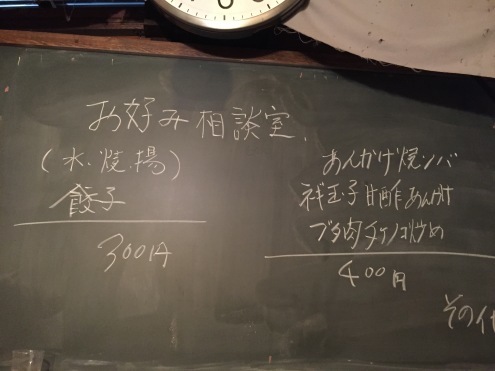 お好み相談室.
(水.焼.揚)
餃子
300円
あんかけ焼ソバ
玉子甘酢あんかけ
ブタ肉タケノコ炒め
400円
その他